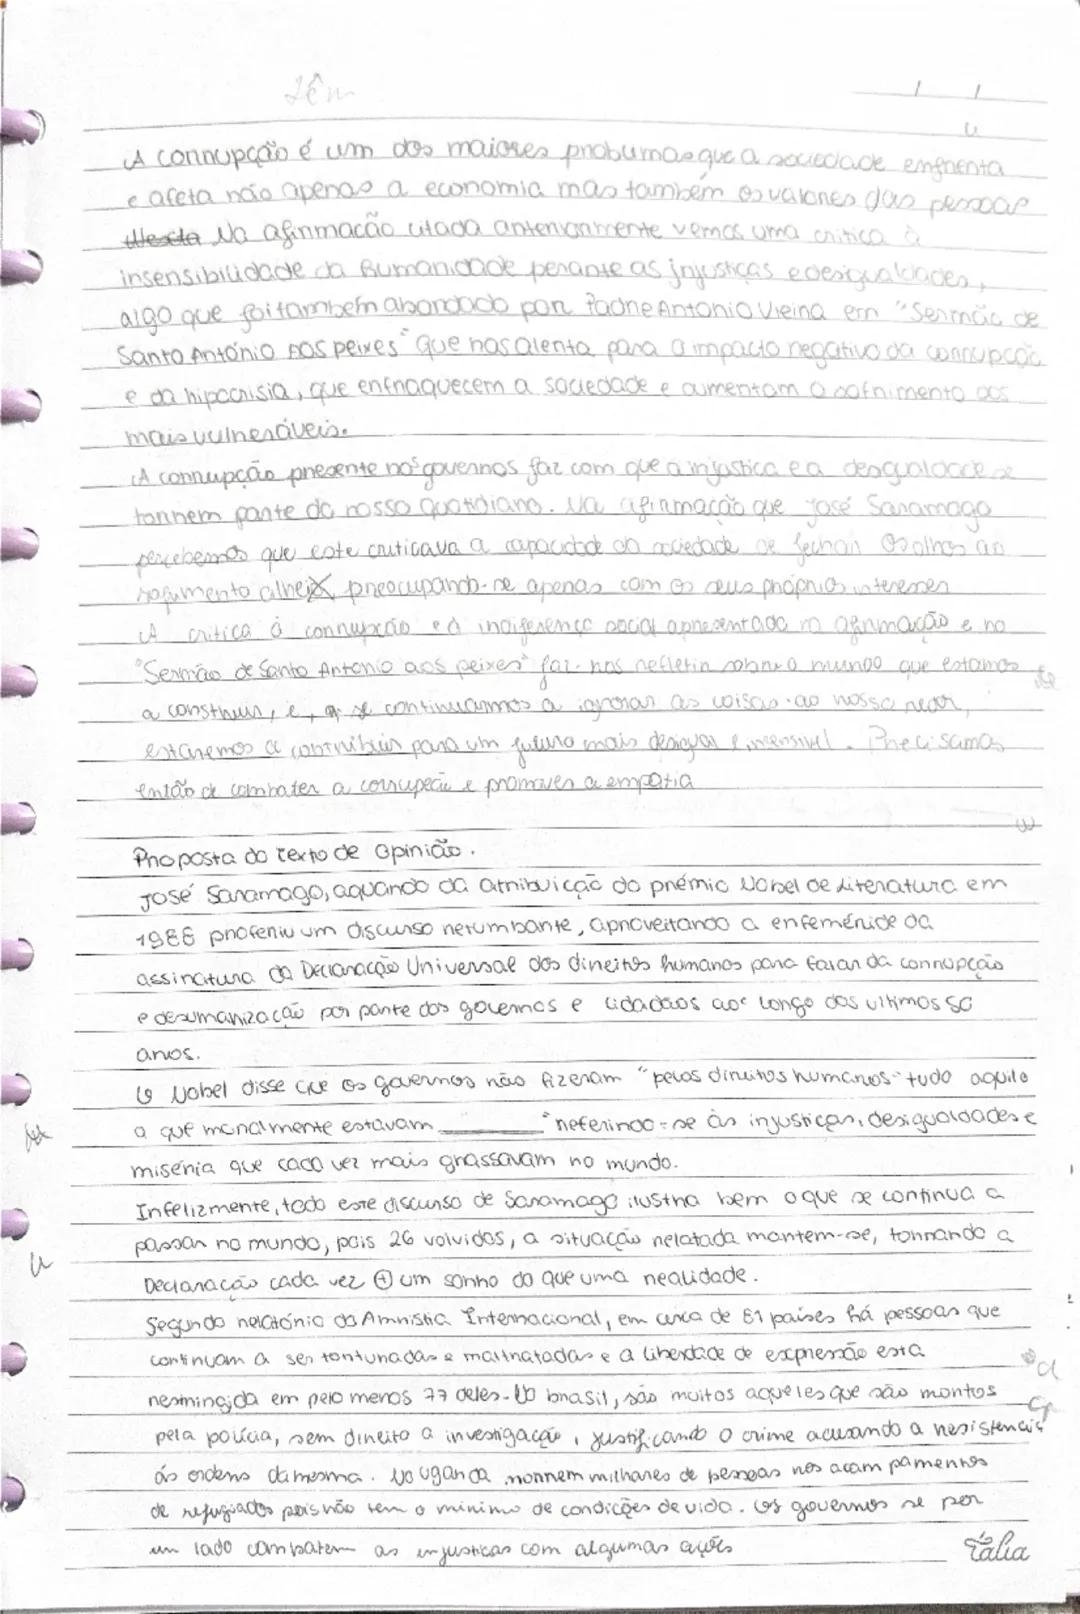 têm
A corrupção é um dos maiores problemas que a sociedade enfrenta
e afeta não apenas a economia mas também os valores das pessoas
Nesta Na afirmação citada anteriormente vemos uma critica à
insensibilidade da Humanidade perante as injustiças e desigualdades,
algo que foi também abordado por Padre Antonio Vieira em "Sermão de
Santo António aos peixes" que nos alerta para o impacto negativo da corrupção
e da hipocrisia, que enfraquecem a sociedade e aumentam o sofrimento dos
mais vulneráveis.
A corrupção presente nos governos faz com que a injustiça e a desigualdade se
tornem parte do nosso quotidiano. Na afirmação que José Saramago
percebemos que este criticava a capacidade da sociedade de fechar os olhos ao
sofrimento alhei preocupando-se apenas com os seus próprios interesses
A critica à corrupção e à indiferença social apresentada na afirmação e no
"Sermão de Santo Antonio aos peixes" faz-nos refletir sobre o mundo que estamos
a construir, e, se continuarmos a ignorar as coisas ao nosso redor,
estaremos a contribuir para um futuro mais desigual e insensivel. Precisamos
então de combater a corrupção e promover a empatia
Proposta do texto de Opinião.
José Saramago, aquando da atribuicção do prémio Nobel de Literatura em
1988 proferiu um discurso retumbante, aproveitando a enfeméride da
assinatura da Declaração Universal dos direitos humanos para falar da corrupção
e desumanização por parte dos governos e cidadãos ao longo dos ultimos 50
anos.
O Nobel disse que os governos não fizeram "pelos direitos humanos tudo aquilo
a que moralmente estavam ________" referindo-se às injustiças, desigualdades e
miséria que cada vez mais grassavam no mundo.
Infelizmente, todo esse discurso de Saramago ilustra bem o que se continua a
passar no mundo, pois 26 volvidos, a situação relatada mantem-se, tornando a
Declaração cada vez + um sonho do que uma realidade.
Segundo relatório da Amnistia Internacional, em cerca de 81 países há pessoas que
continuam a ser torturadas e maltratadas e a liberdade de expressão está
restringida em pelo menos 77 deles. No brasil, são muitos aqueles que são mortos
pela polícia, sem direito a investigação, justificando o crime acusando a resistencia
ás ordens da mesma. No uganda morrem milhares de pessoas nos acampamentos
de refugiados pois não tem o minimo de condições de vida. Os governos se por
um lado combatem as injustiças com algumas ações
Tália